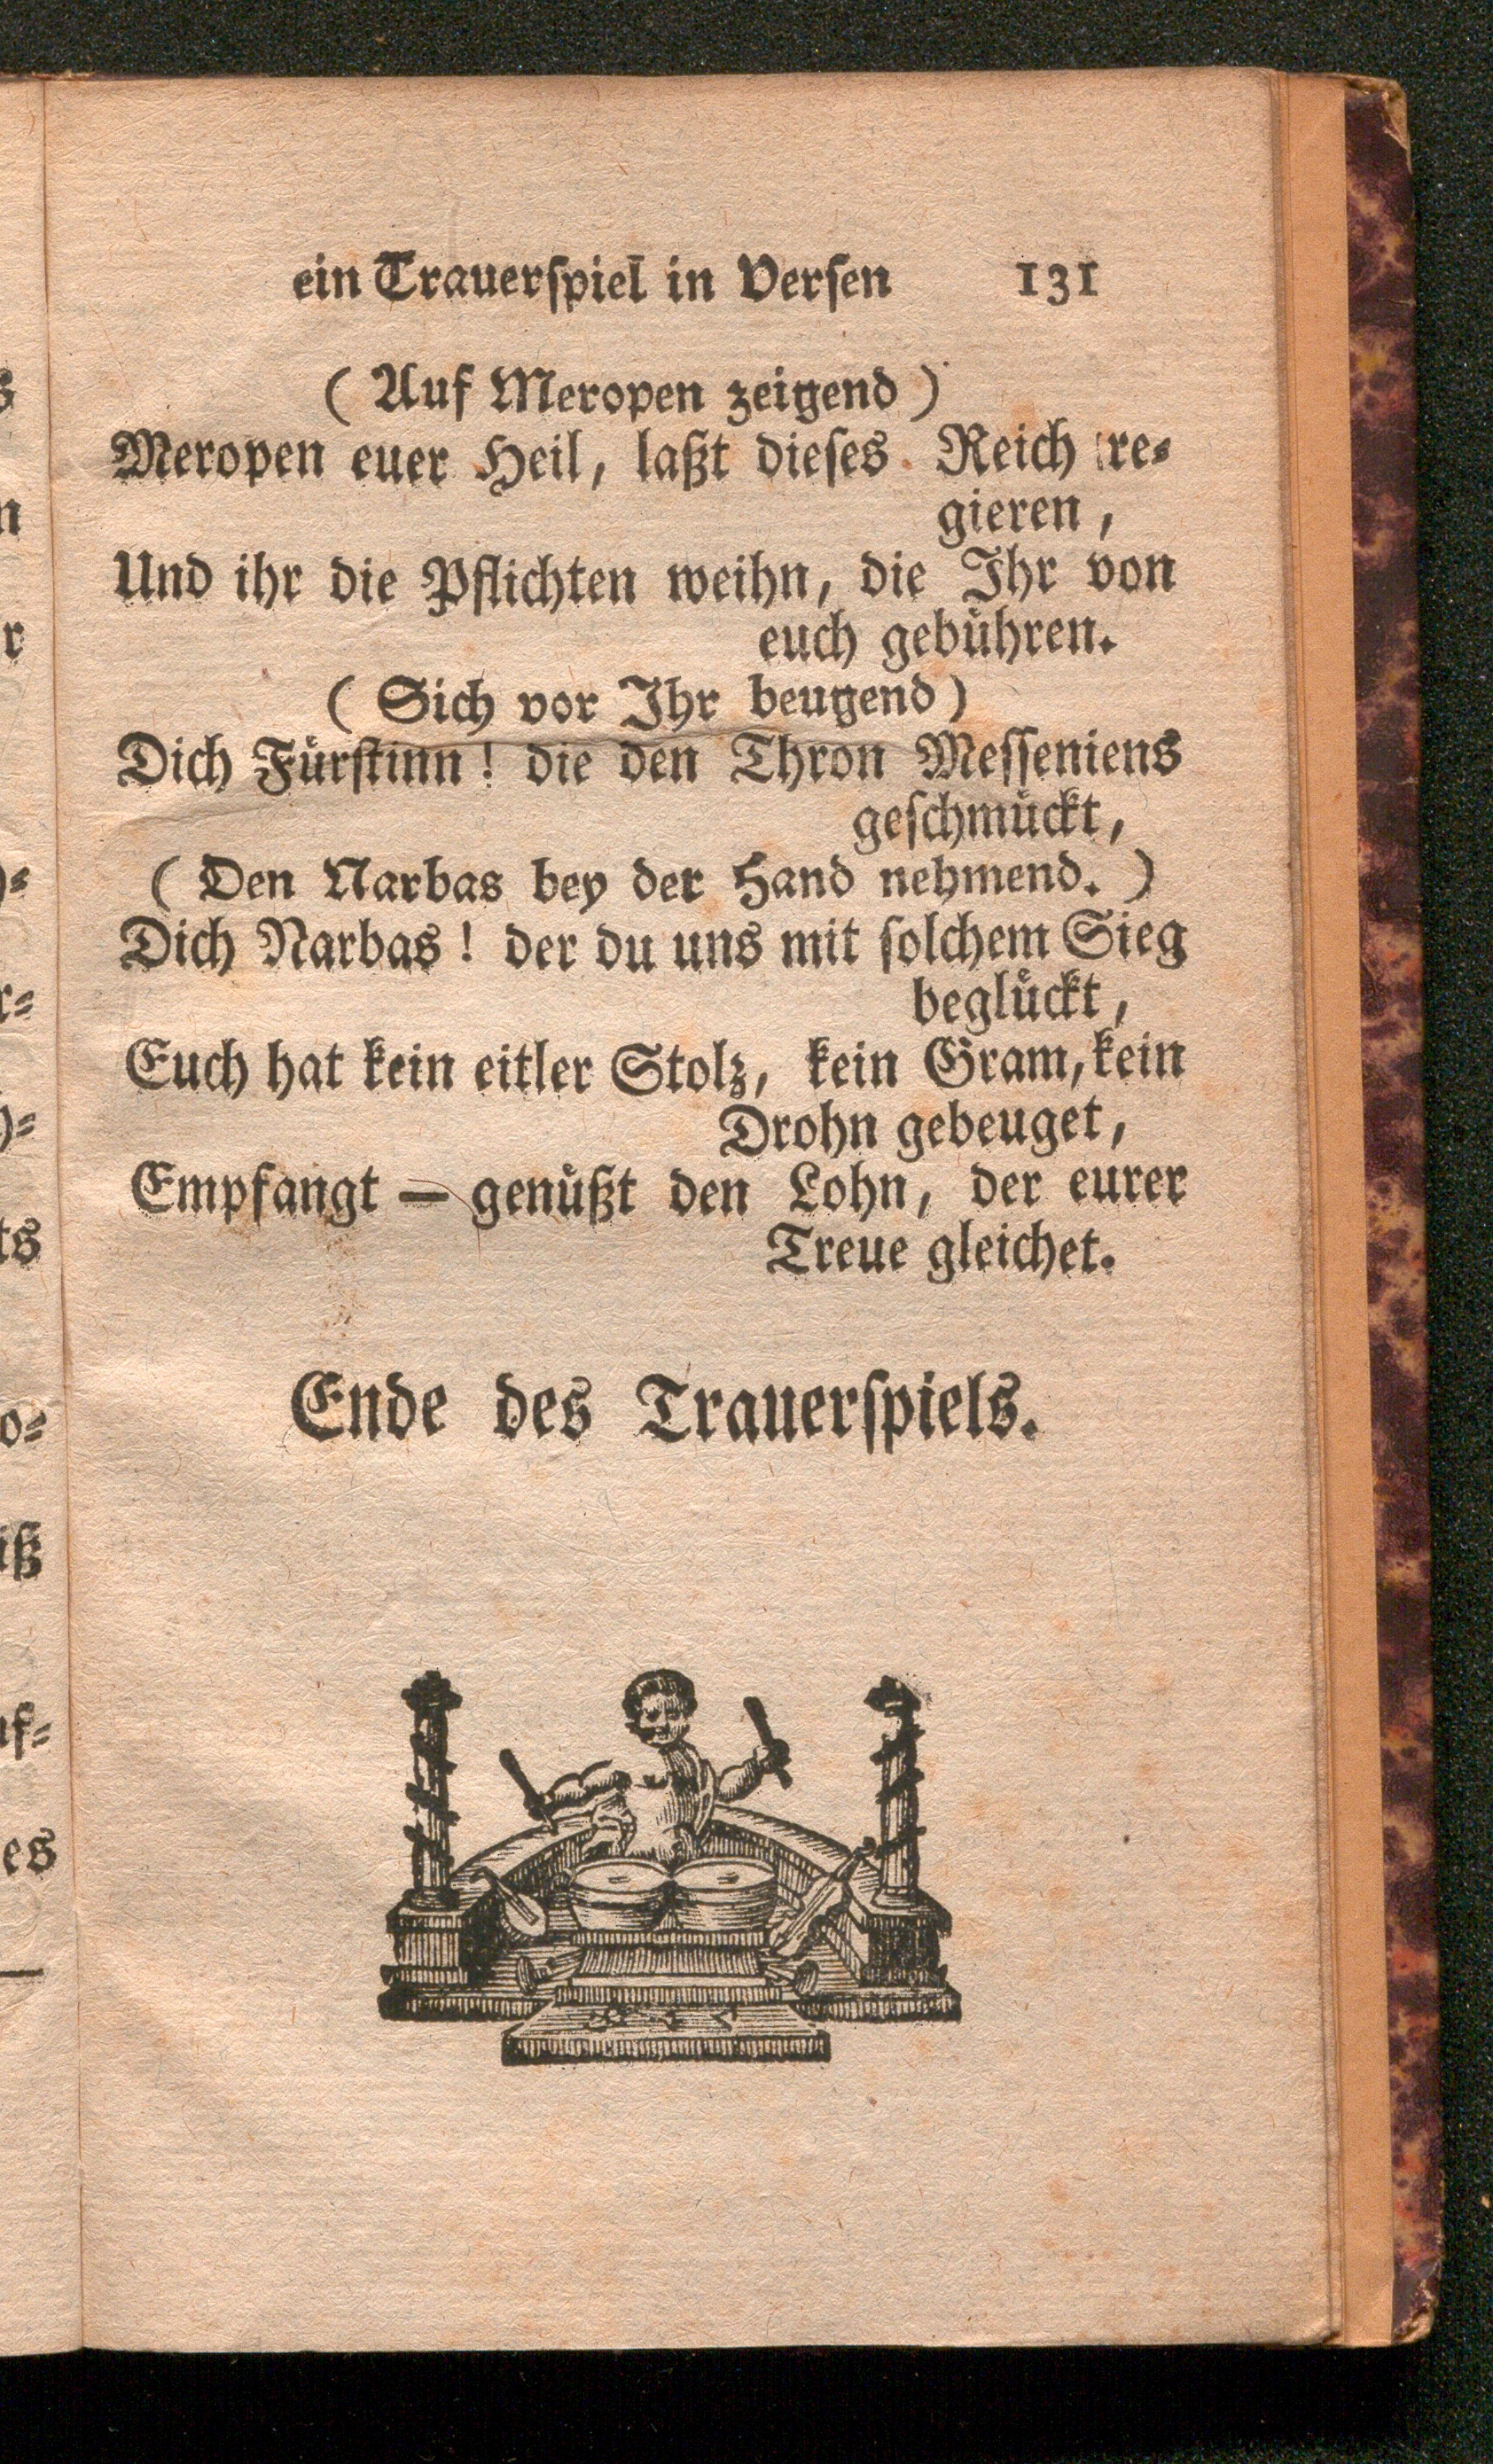 ein Trauerſpiel in Verſen 131
( Auf Meropen zeigend )
Meropen euer Heil, laßt dieſes Reich re-
gieren,
Und ihr die Pflichten weihn, die Ihr von
euch gebühren.
( Sich vor Ihr beugend )
Dich Fürſtinn! die den Thron Meſſeniens
geſchmückt,
( Den Narbas bey der Hand nehmend. )
Dich Narbas! der du uns mit ſolchem Sieg
beglückt,
Euch hat kein eitler Stolz, kein Gram, kein
Drohn gebeuget,
Empfangt — genüßt den Lohn, der eurer
Treue gleichet.
Ende des Trauerſpiels.